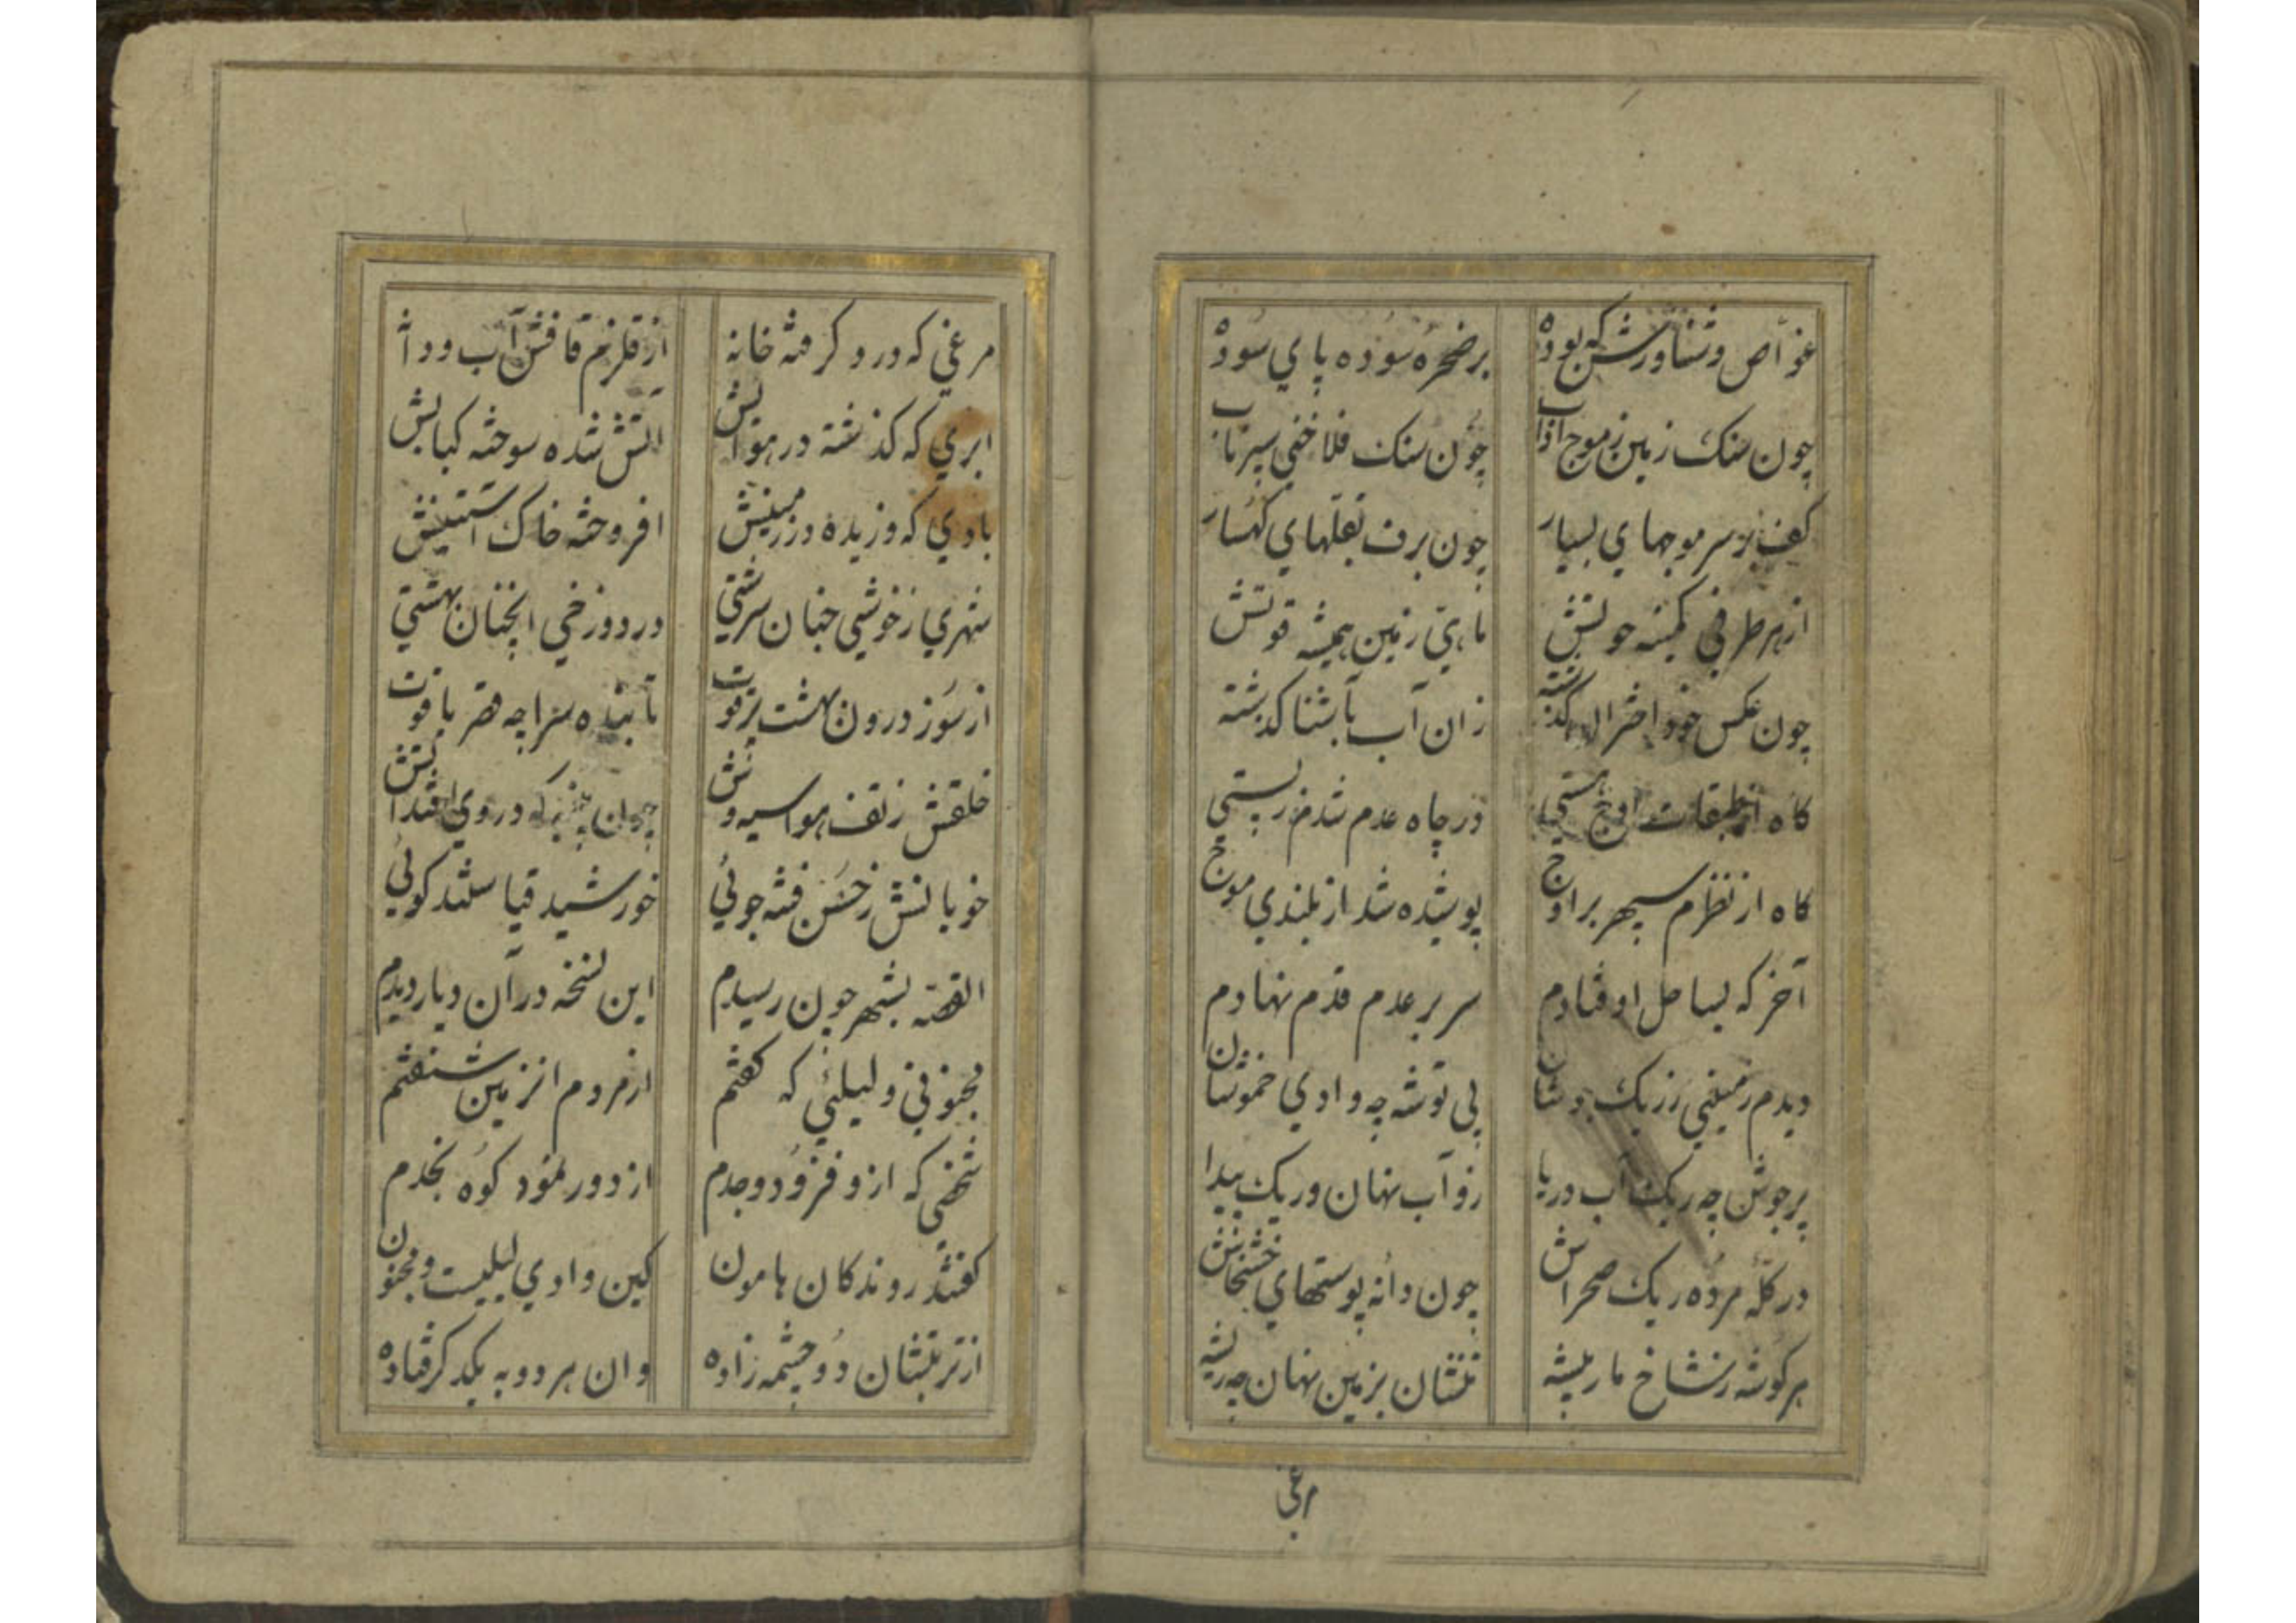 غواص وشناورش که بوده برصخره سوده پای سوده
چون سنک زمین زموج چون سنک فلاخنی سپرتاب
کف بر سر موجهای بسیار چون برف بقلهای کهسار
از هر طرفی ماهی زمین همیشه قوتش
چون عکس خود اختران گذشته زان آب بآشنا گذشته
کاه از طبقات اوج هستی در چاه عدم شدم ز پستی
کاه از نظرم سپهر براوج پوشیده شد از بلندی موج
آخر که بساحل اوفتادم سر بر عدم قدم نهادم
دیدم زمینی زریک جوشان بی توشه چه وادی خموشان
پرجوش چه ریک آب دریا زو آب نهان وریک پیدا
در کله مرده ریک صحراش چون دانه پوستهای خشخاش
هرکوشه زشاخ مار بیشه تنشان بزمین نهان چه ریشه
مرغی
مرغی که درو کرفته خانه از قلزم قافش آب ودانه
ابری که کذشته در هوایش آتش شده سوخته کبابش
بادی که وزیده در زمینش افروخته خاک آستینش
شهری زخوشی چنان سرشتی در دوزخی آنچنان بهشتی
از سوز درون بهشت پرقوت تابنده سراچه قصر یاقوت
خلقش زتف هوا سیه وش چون در وی افتد آتش
خوبانش زحسن فتنه جوئی خورشید قیاستند کوئی
القصه بشهر چون رسیدم این نسخه در آن دیار دیدم
مجنونی ولیلئی که کفتم از مردم انزمین شنفتم
شخصی که ازو فزود وجدم از دور نمود کوه نجدم
کفتند روندکان هامون کین وادی لیلیست ومجنون
از تربتشان دو چشمه زاده وان هر دو به یکدکر فتاده